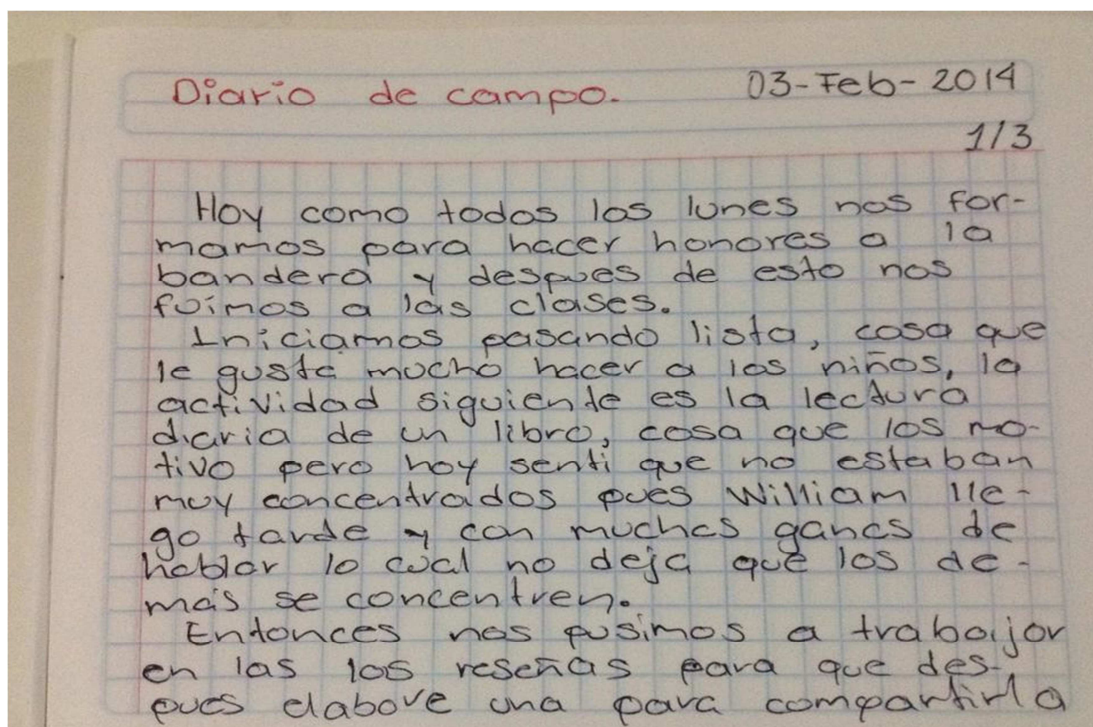 Diario de campo.
03-Feb-2014
1/3
Hoy como todos los lunes nos for-
mamos para hacer honores a la
bandera y despues de esto nos
fuimos a las clases.
Iniciamos pasando lista, cosa que
le gusta mucho hacer a los niños, la
actividad siguiente es la lectura
diaria de un libro, cosa que los mo-
tivo pero hoy senti que no estaban
muy concentrados pues William lle-
go tarde y con muchas ganas de
hablar lo cual no deja que los de-
más se concentren.
Entonces nos pusimos a trabajar
en las los reseñas para que des-
pues elabore una para compartirla